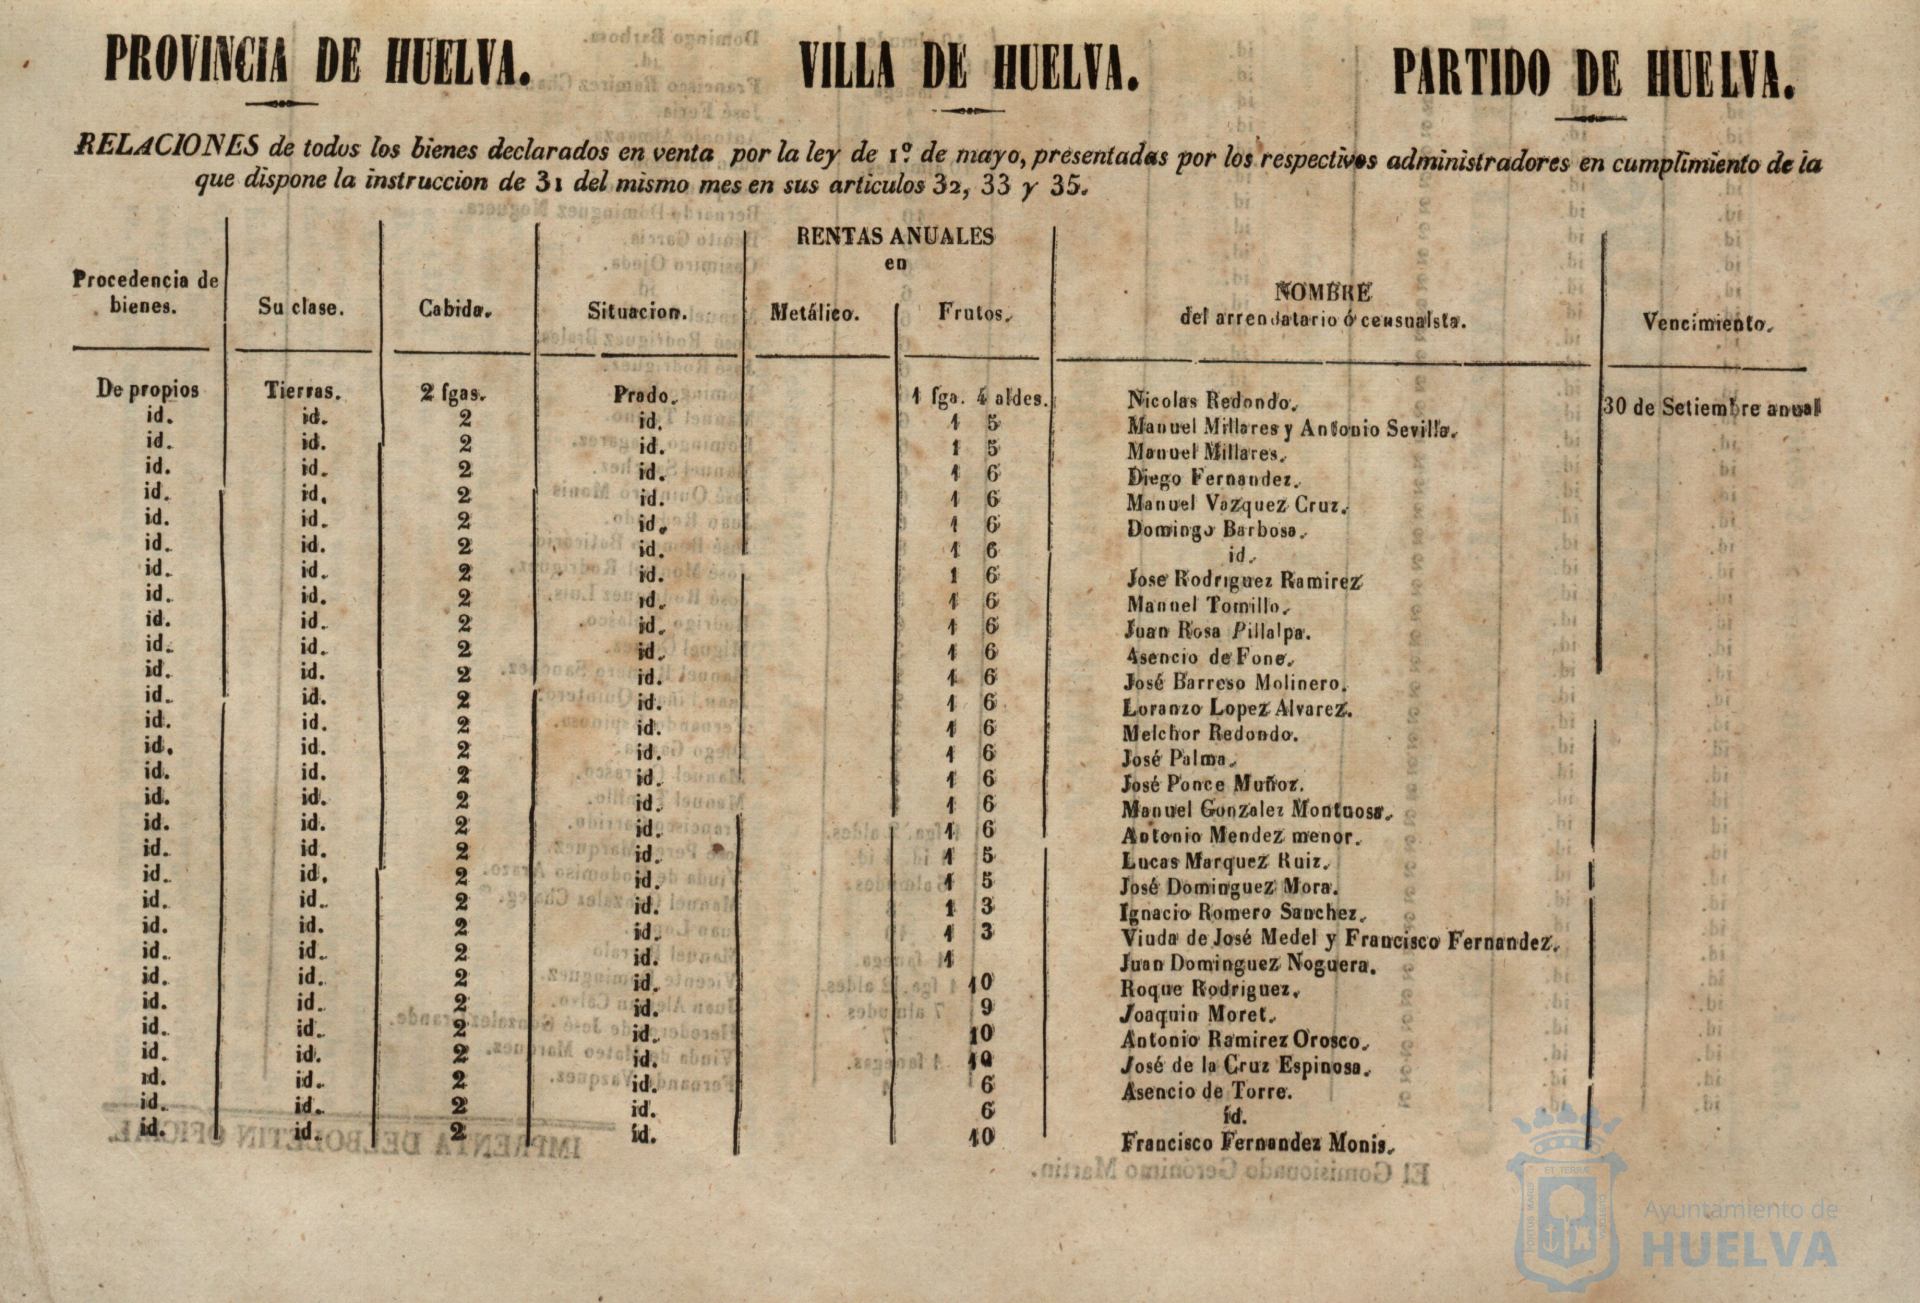 PROVINCIA DE HUELVA. VILLA DE HUELVA. PARTIDO DE HUELVA.
RELACIONES de todos los bienes declarados en venta por la ley de 1º de mayo, presentadas por los respectivos administradores en cumplimiento de la
que dispone la instruccion de 31 del mismo mes en sus articulos 32, 33 y 35.
RENTAS ANUALES
en
Procedencia de bienes. Su clase. Cabida. Situacion. Metálico. Frutos. NOMBRE del arrendatario ó censualsta. Vencimiento.
De propios Tierras. 2 fgas. Prado. 1 fga. 4 aldes. Nicolas Redondo. 30 de Setiembre anual
id. id. 2 id. 1 5 Manuel Millares y Antonio Sevilla.
id. id. 2 id. 1 5 Manuel Millares.
id. id. 2 id. 1 6 Diego Fernandez.
id. id. 2 id. 1 6 Manuel Vazquez Cruz.
id. id. 2 id. 1 6 Domingo Barbosa.
id. id. 2 id. 1 6 id.
id. id. 2 id. 1 6 Jose Rodriguez Ramirez
id. id. 2 id. 1 6 Manuel Tomillo.
id. id. 2 id. 1 6 Juan Rosa Pillalpa.
id. id. 2 id. 1 6 Asencio de Fone.
id. id. 2 id. 1 6 José Barreso Molinero.
id. id. 2 id. 1 6 Loranzo Lopez Alvarez.
id. id. 2 id. 1 6 Melchor Redondo.
id. id. 2 id. 1 6 José Palma.
id. id. 2 id. 1 6 José Ponce Muñoz.
id. id. 2 id. 1 6 Manuel Gonzalez Montuosa.
id. id. 2 id. 1 6 Antonio Mendez menor.
id. id. 2 id. 1 5 Lucas Marquez Ruiz.
id. id. 2 id. 1 5 José Dominguez Mora.
id. id. 2 id. 1 3 Ignacio Romero Sanchez.
id. id. 2 id. 1 3 Viuda de José Medel y Francisco Fernandez.
id. id. 2 id. 1 Juan Dominguez Noguera.
id. id. 2 id. 10 Roque Rodriguez.
id. id. 2 id. 9 Joaquin Moret.
id. id. 2 id. 10 Antonio Ramirez Orosco.
id. id. 2 id. 10 José de la Cruz Espinosa.
id. id. 2 id. 6 Asencio de Torre.
id. id. 2 id. 6 id.
id. id. 2 id. 10 Francisco Fernandez Monis.
Ayuntamiento de
HUELVA